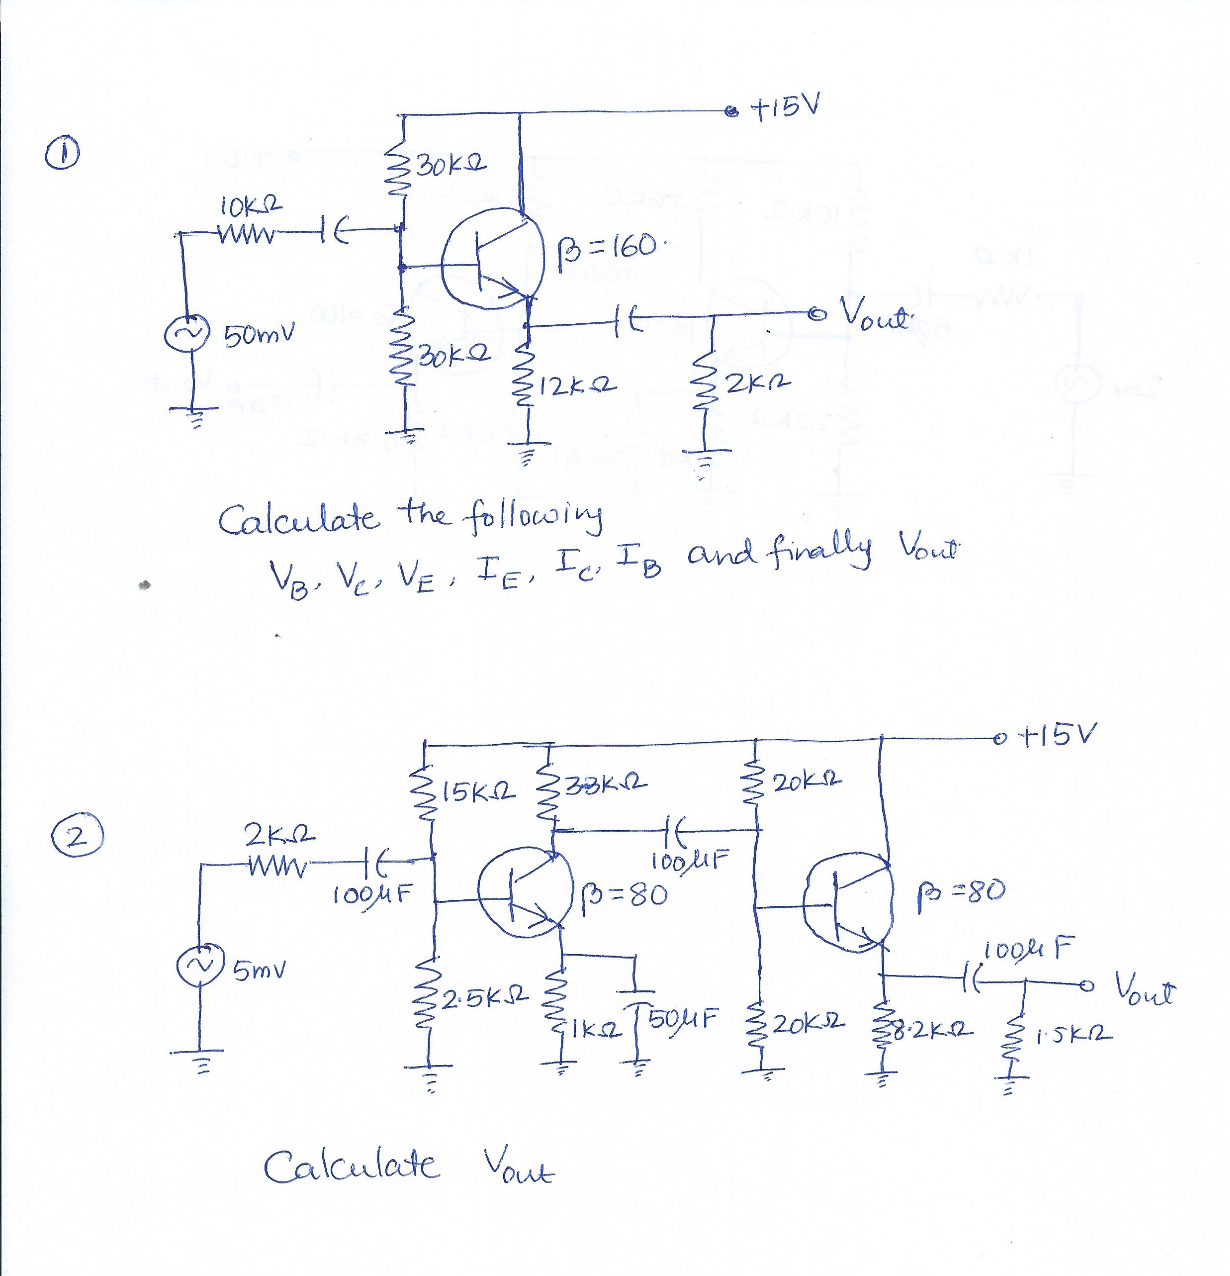 ①
+15V
30KΩ
10KΩ
β=160.
50mV
Vout.
30KΩ
12KΩ
2KΩ
Calculate the following
VB, VC, VE, IE, IC, IB and finally Vout
②
+15V
15KΩ
20KΩ
2KΩ
100μF
100μF
β=80
β=80
100μF
5mV
Vout
2.5KΩ
1KΩ
50μF
20KΩ
8.2KΩ
1.5KΩ
Calculate Vout